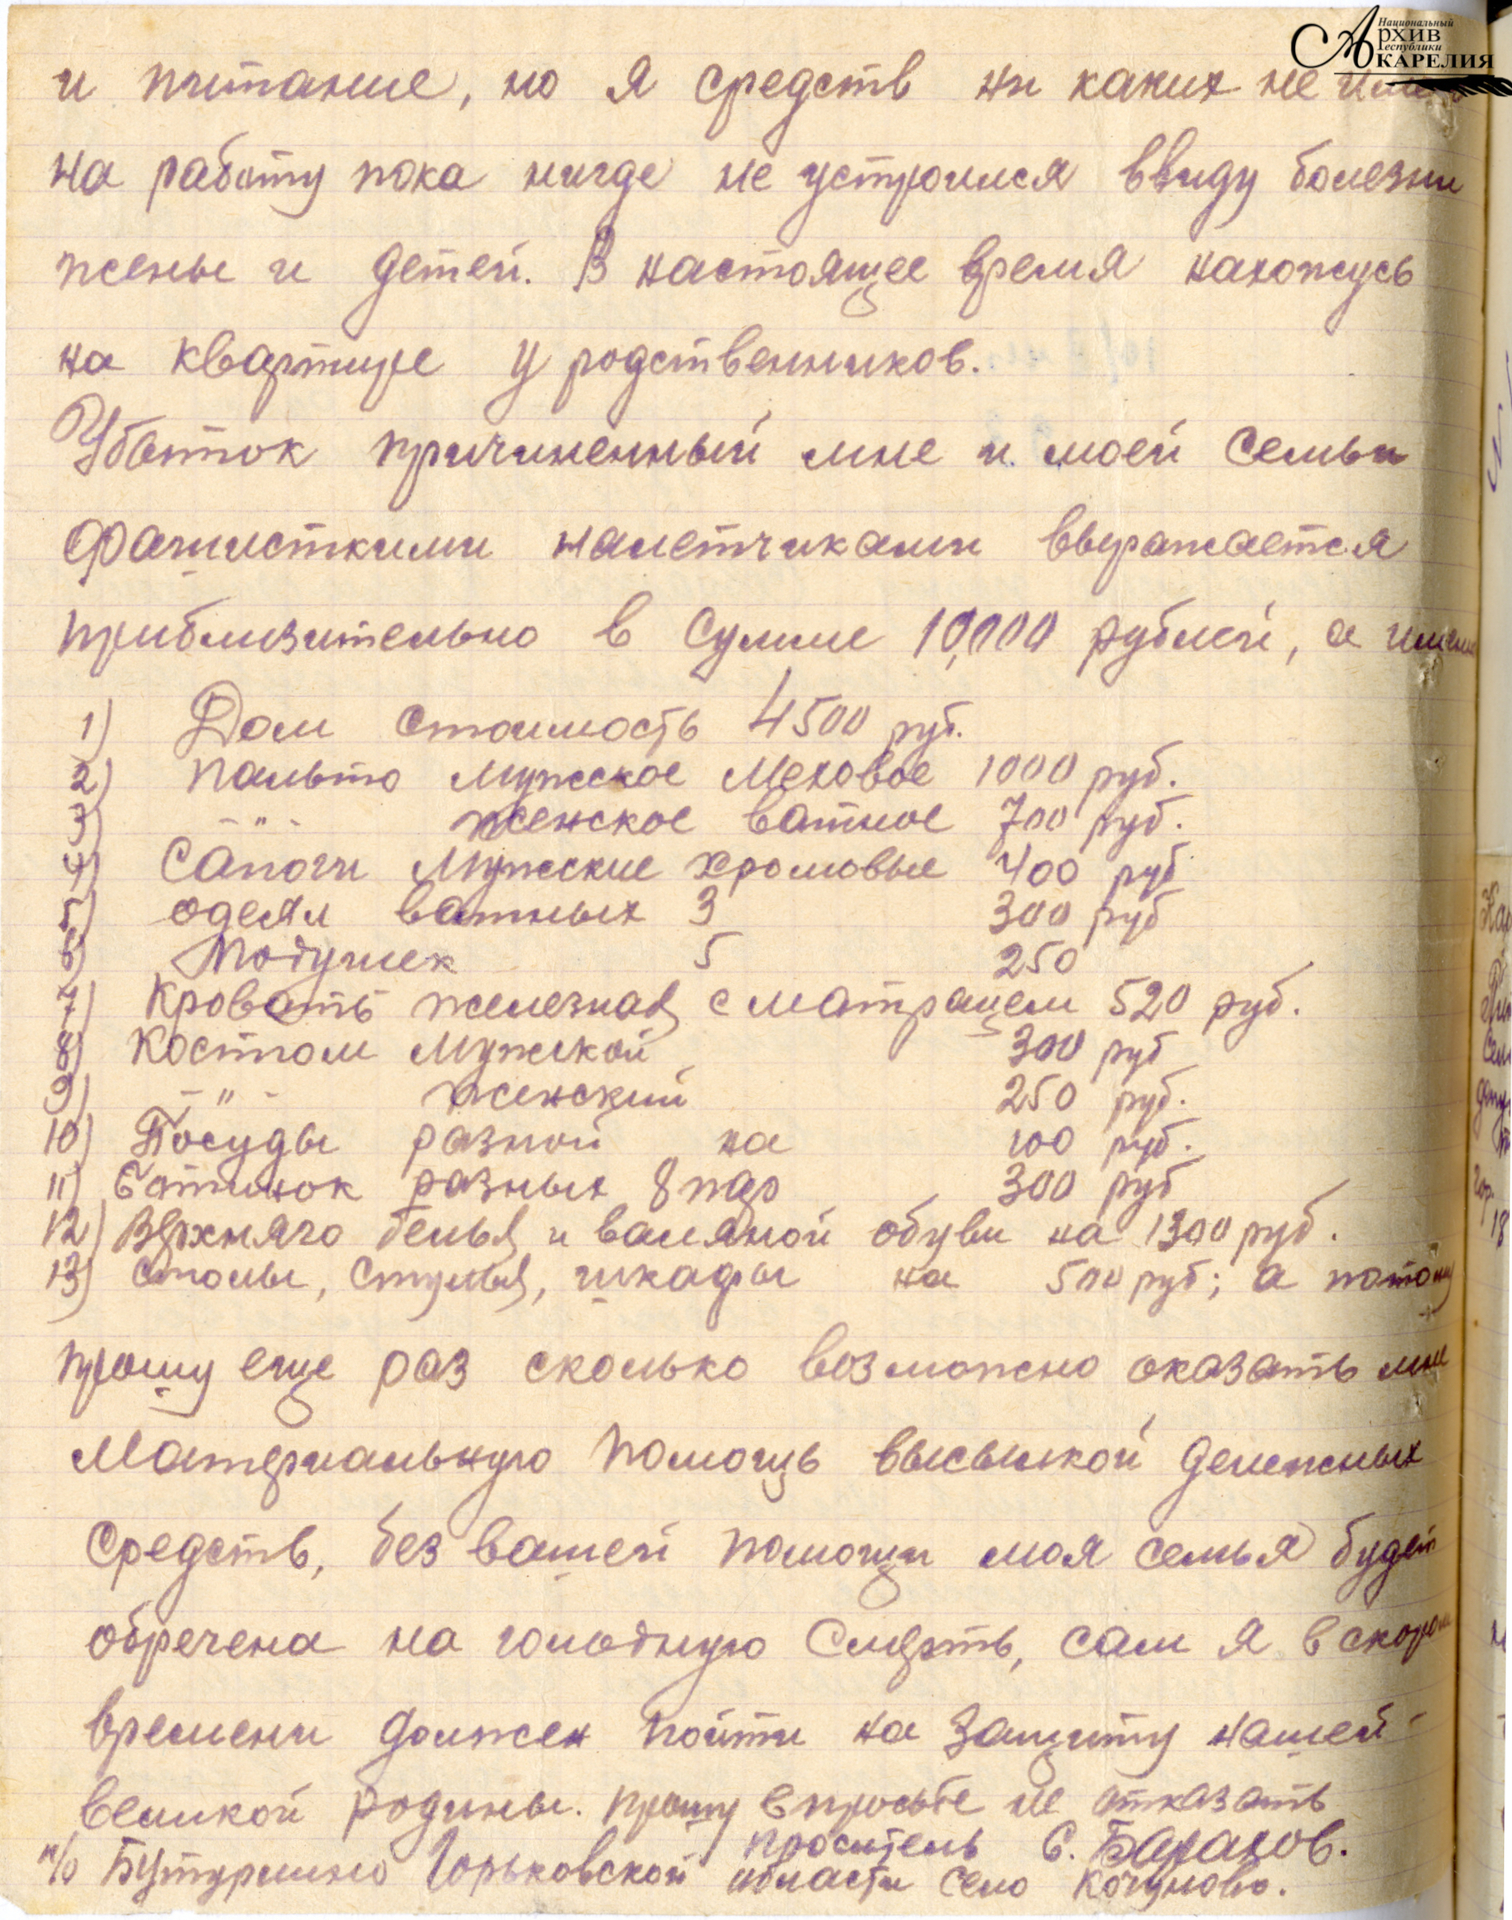 Национальный
Архив
Республики
КАРЕЛИЯ
и питание, но я средств ни каких не имею
на работу пока нигде не устроился ввиду болезни
жены и детей. В настоящее время нахожусь
на квартире у родственников.
Убыток причиненный мне и моей семьи
фашисткими налетчиками выражается
приблизительно в сумме 10,000 рублей, а именно
1) Дом стоимость 4500 руб.
2) пальто мужское меховое 1000 руб.
3) -"- женское ватное 700 руб.
4) Сапоги мужские хромовые 400 руб
5) одеял ватных 3 300 руб
6) Подушек 5 250
7) Кровать железная с матрацем 520 руб.
8) Костюм мужской 300 руб
9) -"- женский 250 руб.
10) Посуды разной на 100 руб.
11) Ботинок разных 8 пар 300 руб
12) Верхняго белья и валяной обуви на 1300 руб.
13) столы, стулья, шкафы на 500 руб; а потому
прошу еще раз сколько возможно оказать мне
материальную помощь высылкой денежных
средств, без вашей помощи моя семья будет
обречена на голодную смерть, сам я в скором
времени должен пойти на защиту нашей
великой родины. прошу в просьбе не отказать
проситель С. Баранов.
п/о Бутурлино Горьковской области село Кочуново.